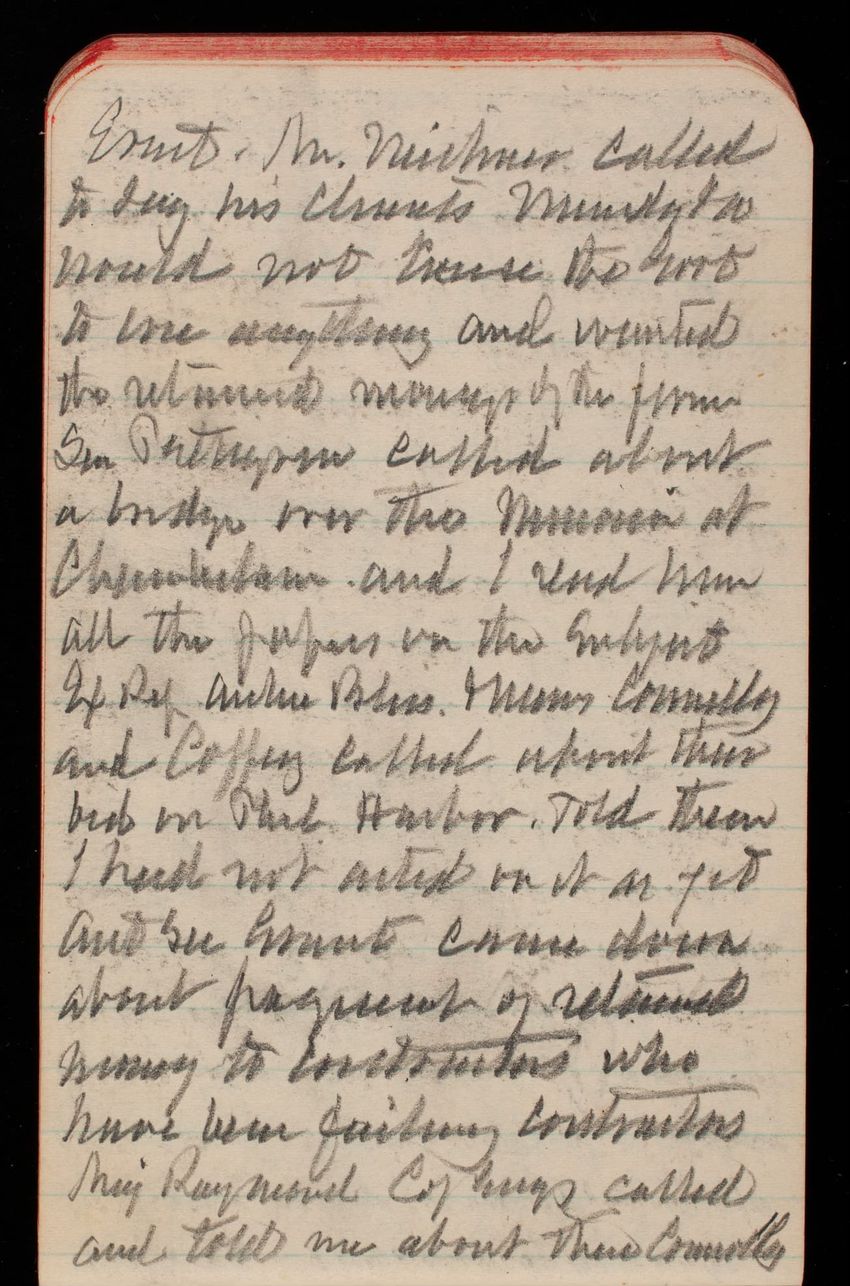 Grant. Mr. called
to say his clients Mundy & Co
would not the Govt
to lose anything and wanted
the retained moneys of the firm
Sen Pettigrew called about
a bridge over the Missouri at
Chamberlain and I read him
all the papers on the Subject
Ex Rep Archie Bliss. Messrs Connolly
and Coffey called about their
bid on Phil Harbor. Told them
I had not acted on it as yet
Asst Sec Grant came down
about payment of retained
money to contractors who
have been failing contractors
Maj Raymond Cof Engs called
and told me about these Connolly